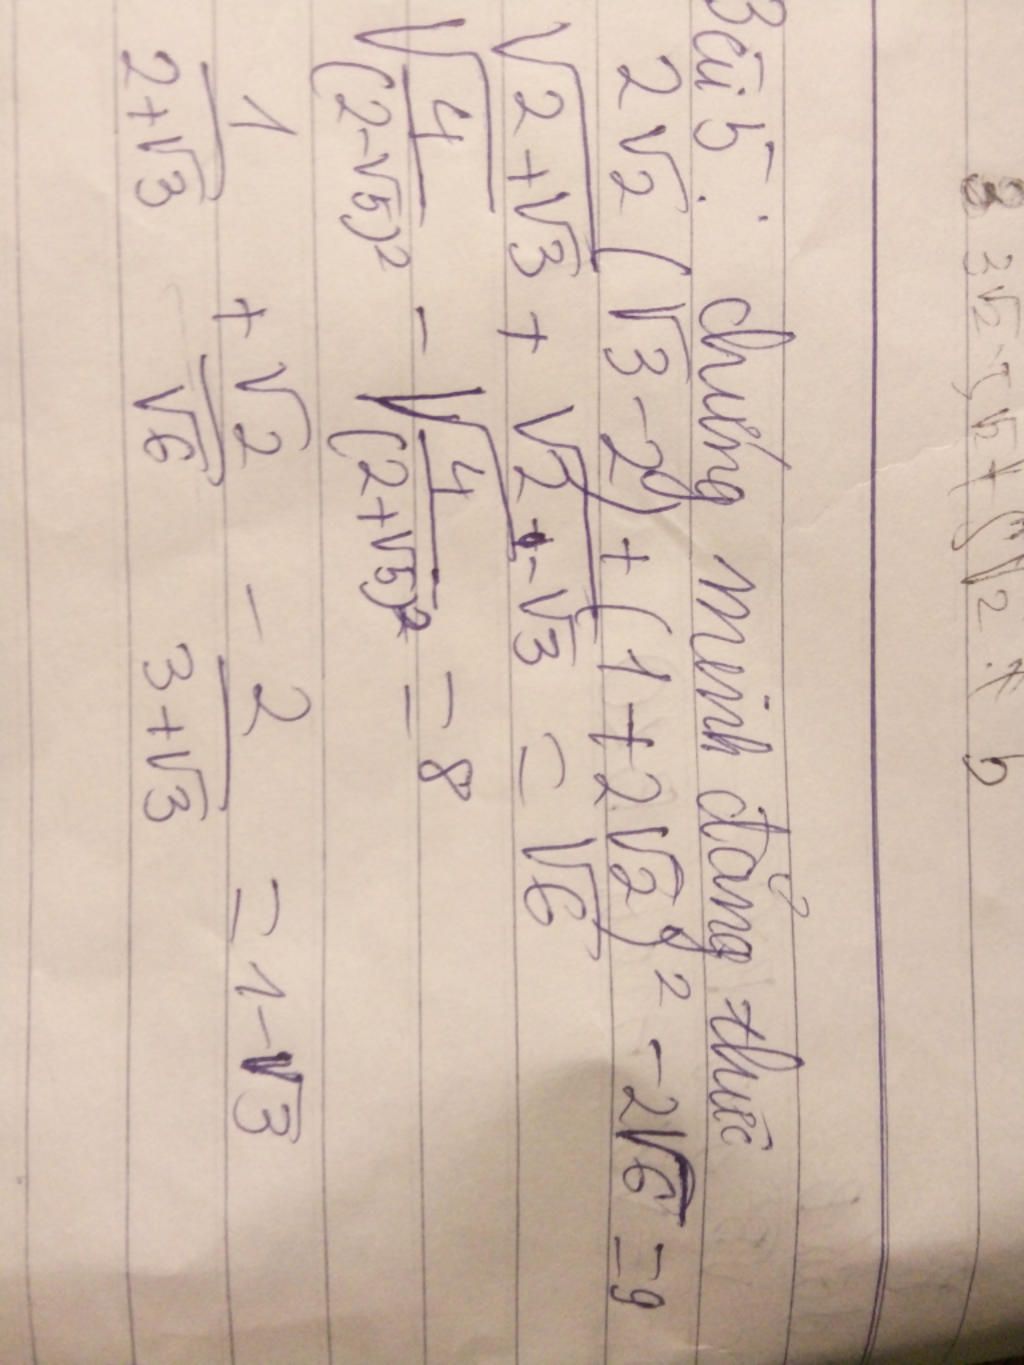 Bài 5: chứng minh đẳng thức
2√2 (√3 - 2) + (1 + 2√2)² - 2√6 = 9
√(2+√3) + √(2-√3) = √6
√(4/(2-√5)²) - √(4/(2+√5)²) = 8
1/(2+√3) + √2/√6 - 2/(3+√3) = 1-√3